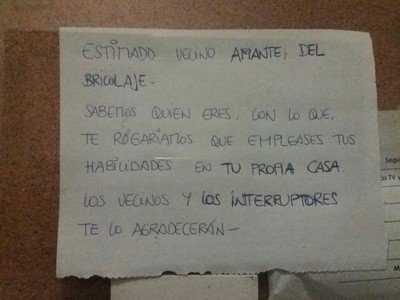 ESTIMADO VECINO AMANTE DEL
BRICOLAJE-
SABEMOS QUIEN ERES, CON LO QUE,
TE ROGARÍAMOS QUE EMPLEASES TUS
HABILIDADES EN TU PROPIA CASA.
LOS VECINOS Y LOS INTERRUPTORES
TE LO AGRADECERÁN-
Segu